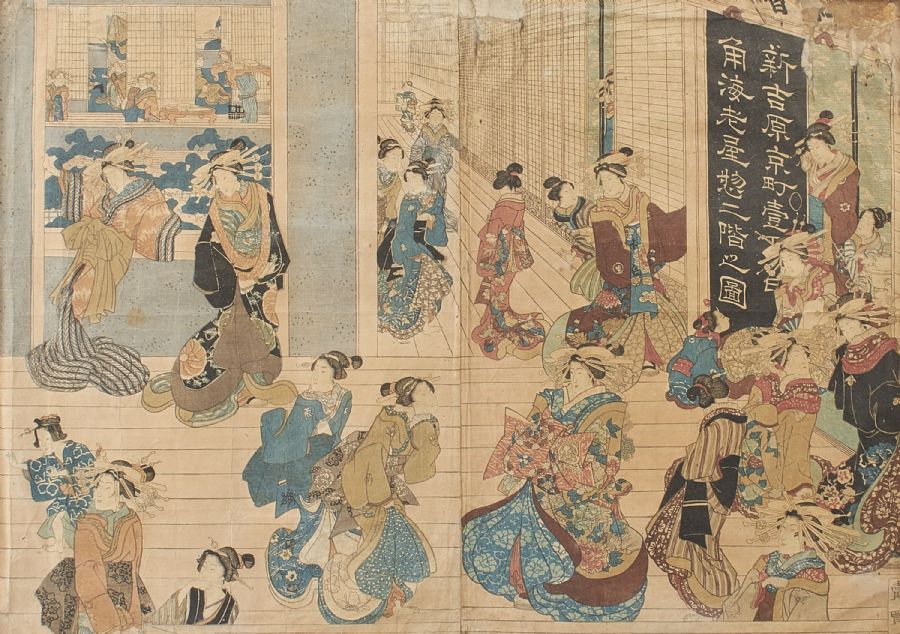 新吉原京町壹丁目
角海老屋惣二階之圖